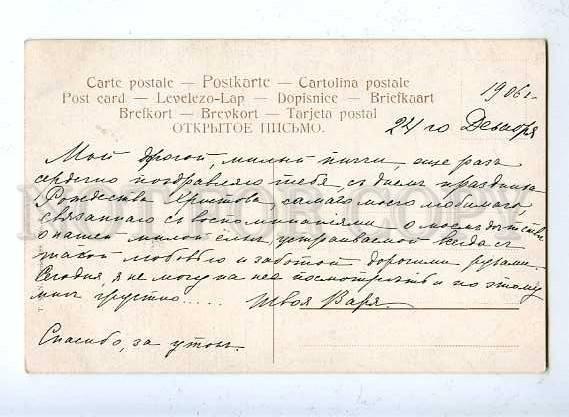 Carte postale — Postkarte — Cartolina postale
Post card — Levelezo-Lap — Dopisnice — Briefkaart
Brefkort — Brevkort — Tarjeta postal
ОТКРЫТОЕ ПИСЬМО.
1906 г.
24го Декабря
Мой дорогой, милый еще раза
сердечно поздравляю тебя, съ днемъ праздника
Рождества Христова, самаго моего любимаго,
связаннаго съ воспоминаніями о моемъ детстве
о нашей милой елке, устраиваемой всегда съ
такой любовью и заботой дорогими руками.
Сегодня, я не могу на нее посмотреть и по этому
мне грустно..... Твоя Варя.
Спасибо, за
NOT FOR COPY